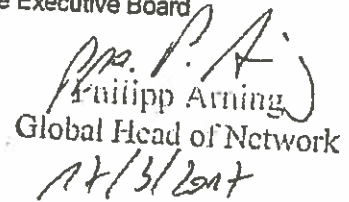 e Executive Board
ppa. P. Ai
Philipp Arning
Global Head of Network
17/3/2017